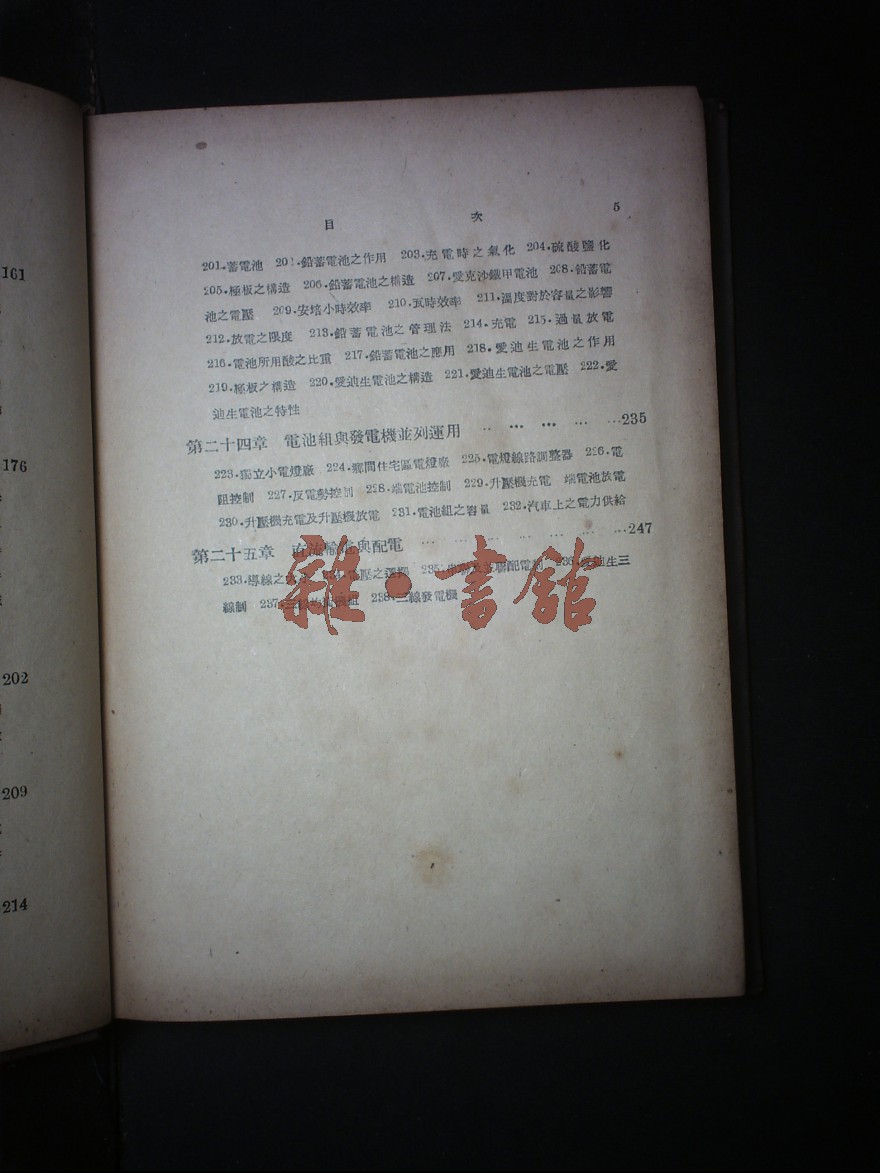 161
176
202
209
214
目 次 5
201.蓄電池 202.鉛蓄電池之作用 203.充電時之氣化 204.硫酸鹽化
205.極板之構造 206.鉛蓄電池之構造 207.愛克沙鐵甲電池 208.鉛蓄電
池之電壓 209.安培小時效率 210.瓦時效率 211.溫度對於容量之影響
212.放電之限度 213.鉛蓄電池之管理法 214.充電 215.過量放電
216.電池所用酸之比重 217.鉛蓄電池之應用 218.愛迪生電池之作用
219.極板之構造 220.愛迪生電池之構造 221.愛迪生電池之電壓 222.愛
迪生電池之特性
第二十四章 電池組與發電機並列運用 ⋯⋯⋯⋯235
223.獨立小電燈廠 224.鄉間住宅區電燈廠 225.電燈線路調整器 226.電
阻控制 227.反電勢控制 228.端電池控制 229.升壓機充電 端電池放電
230.升壓機充電及升壓機放電 231.電池組之容量 232.汽車上之電力供給
第二十五章 直流輸電與配電 ⋯⋯⋯⋯247
233.導線之 電壓之選擇 235. 聯配電制 236.愛迪生三
線制 237.三線 238.三線發電機
雜·書館